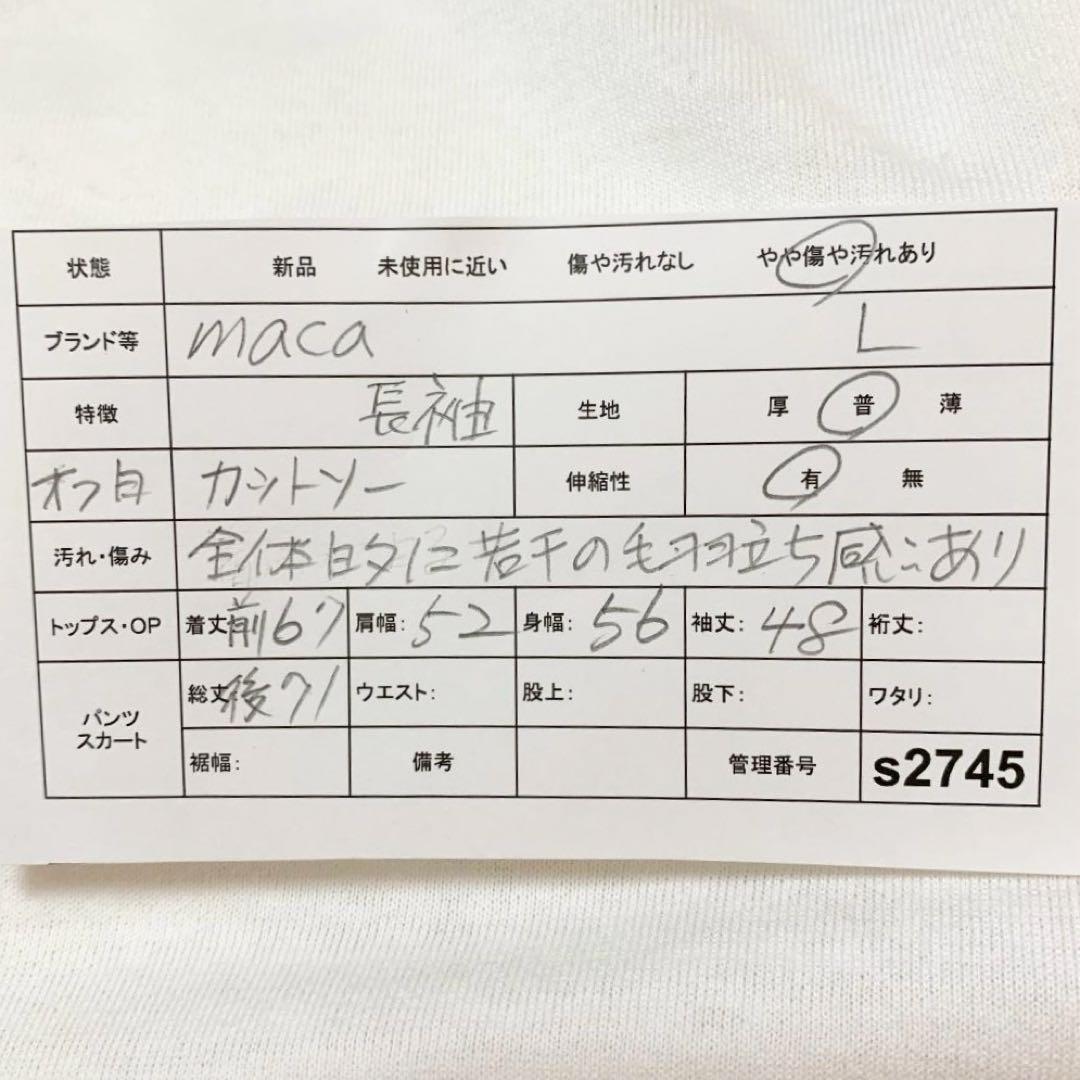 状態 新品 未使用に近い 傷や汚れなし やや傷や汚れあり
ブランド等 maca L
特徴 長袖 生地 厚 普 薄
オフ白 カットソー 伸縮性 有 無
汚れ・傷み 全体的に若干の毛羽立ち感あり
トップス・OP 着丈 前67 肩幅: 52 身幅: 56 袖丈: 48 裄丈:
パンツ スカート 総丈 後71 ウエスト: 股上: 股下: ワタリ:
裾幅: 備考 管理番号 s2745